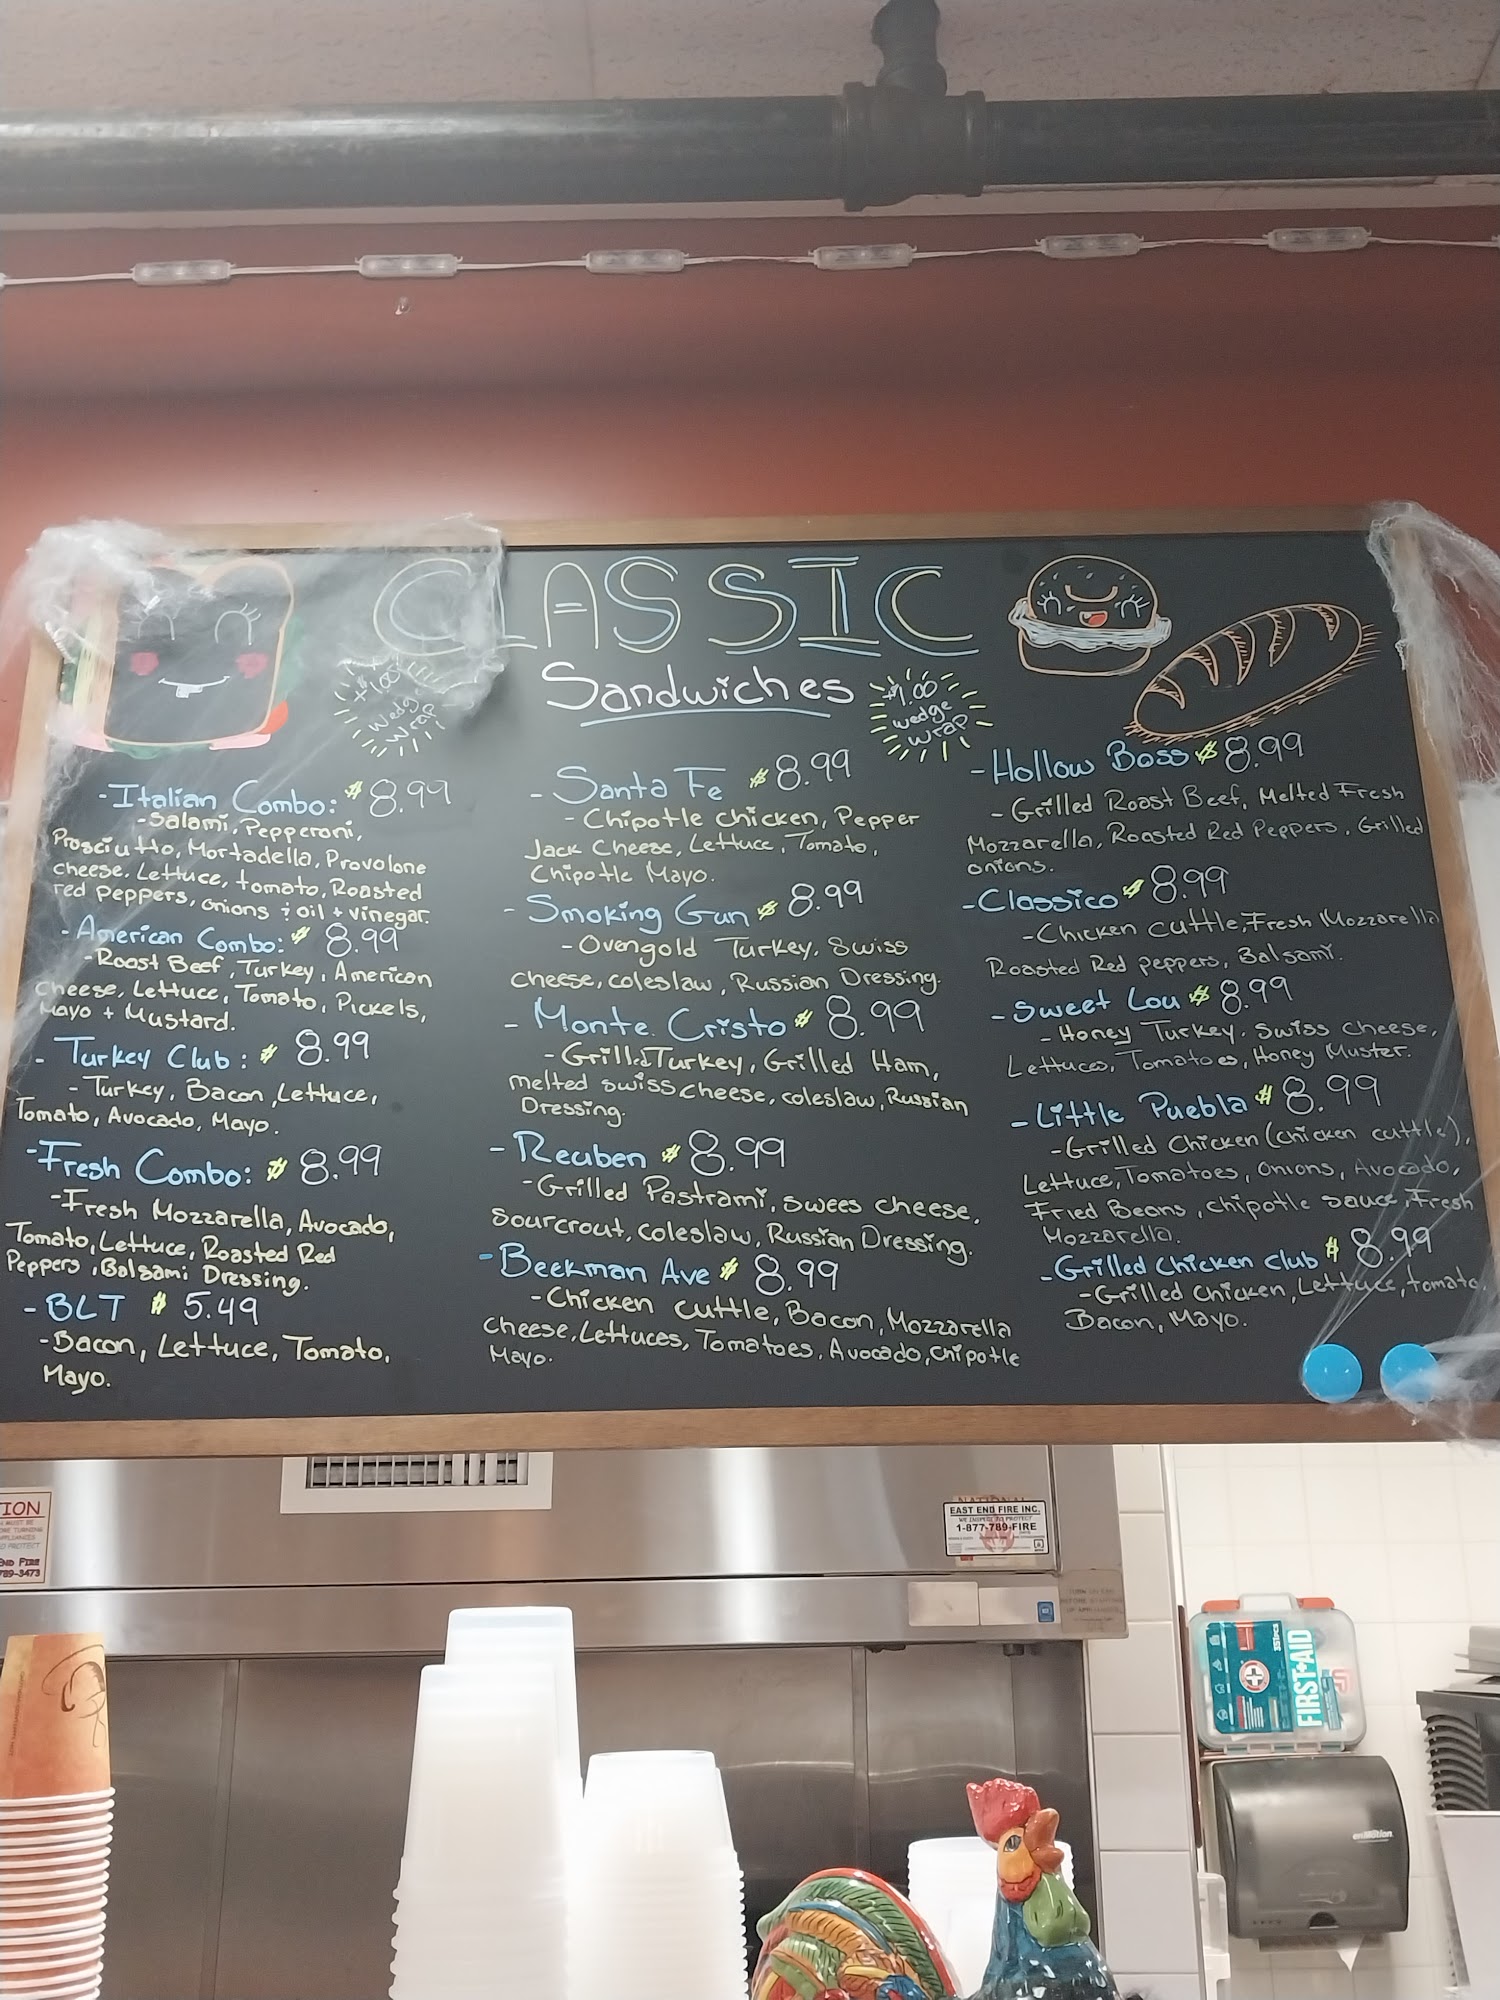 CLASSIC
Sandwiches
+$1.00
Wedge
Wrap
+$1.00
wedge
wrap
-Italian Combo: $8.99
-Salami, Pepperoni,
Prosciutto, Mortadella, Provolone
cheese, Lettuce, tomato, Roasted
red peppers, onions & oil + vinegar.
-American Combo: $8.99
-Roast Beef, Turkey, American
cheese, Lettuce, Tomato, Pickels,
Mayo + Mustard.
- Turkey Club: $8.99
- Turkey, Bacon, Lettuce,
Tomato, Avocado, Mayo.
-Fresh Combo: $8.99
-Fresh Mozzarella, Avocado,
Tomato, Lettuce, Roasted Red
Peppers, Balsami Dressing.
- BLT $5.49
-Bacon, Lettuce, Tomato,
Mayo.
- Santa Fe $8.99
- Chipotle chicken, Pepper
Jack Cheese, Lettuce, Tomato,
Chipotle Mayo.
- Smoking Gun $8.99
-Ovengold Turkey, Swiss
cheese, coleslaw, Russian Dressing.
- Monte Cristo $8.99
-Grilled Turkey, Grilled Ham,
melted swiss cheese, coleslaw, Russian
Dressing.
- Reuben $8.99
-Grilled Pastrami, swees cheese,
sourcrout, coleslaw, Russian Dressing.
-Beekman Ave $8.99
-Chicken cuttle, Bacon, Mozzarella
cheese, Lettuces, Tomatoes, Avocado, Chipotle
Mayo.
-Hollow Boss $8.99
-Grilled Roast Beef, Melted Fresh
Mozzarella, Roasted Red Peppers, Grilled
onions.
-Classico $8.99
-Chicken cuttle, Fresh Mozzarella
Roasted Red peppers, Balsami.
-Sweet Lou $8.99
-Honey Turkey, Swiss cheese,
Lettuces, Tomatoes, Honey Muster.
-Little Puebla $8.99
-Grilled Chicken (chicken cuttle),
Lettuce, Tomatoes, Onions, Avocado,
Fried Beans, chipotle sauce, Fresh
Mozzarella.
-Grilled Chicken Club $8.99
-Grilled Chicken, Lettuce, tomato,
Bacon, Mayo.
EAST END FIRE INC.
WE INSPECT TO PROTECT
1-877-789-FIRE
TION
END FIRE
789-3473
FIRST AID
351pcs
enMotion